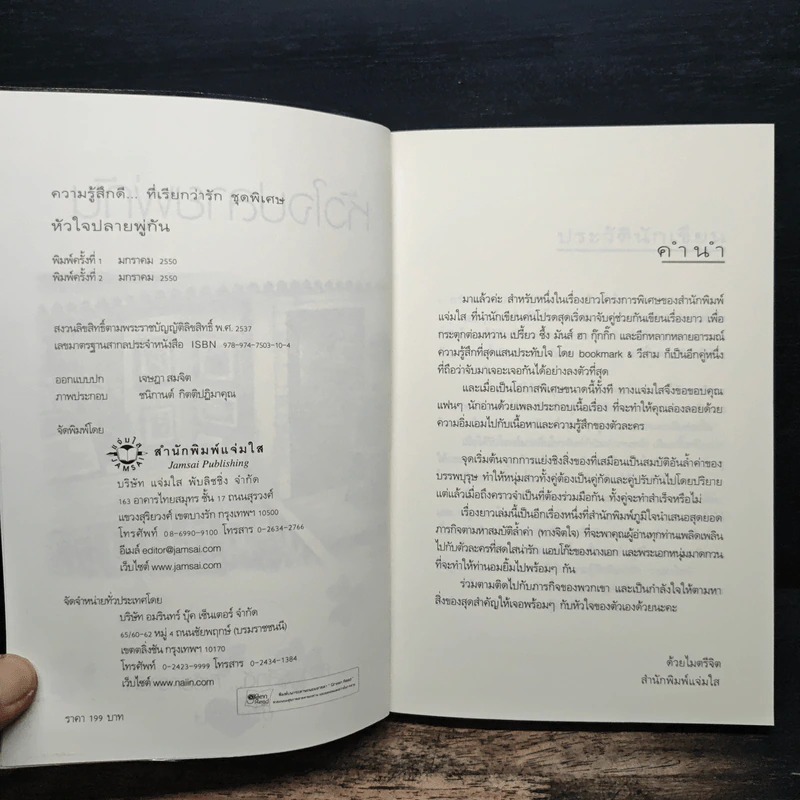 ความรู้สึกดี... ที่เรียกว่ารัก ชุดพิเศษ
หัวใจปลายพู่กัน
พิมพ์ครั้งที่ 1 มกราคม 2550
พิมพ์ครั้งที่ 2 มกราคม 2550
สงวนลิขสิทธิ์ตามพระราชบัญญัติลิขสิทธิ์ พ.ศ. 2537
เลขมาตรฐานสากลประจำหนังสือ ISBN 978-974-7503-10-4
ออกแบบปก เจษฎา สมจิต
ภาพประกอบ ชนิกานต์ กิตติปฏิมาคุณ
จัดพิมพ์โดย
แจ่มใส
JAMSAI
สำนักพิมพ์แจ่มใส
Jamsai Publishing
บริษัท แจ่มใส พับลิชชิ่ง จำกัด
163 อาคารไทยสมุทร ชั้น 17 ถนนสุรวงศ์
แขวงสุริยวงศ์ เขตบางรัก กรุงเทพฯ 10500
โทรศัพท์ 08-6990-9100 โทรสาร 0-2634-2766
อีเมล์ editor@jamsai.com
เว็บไซต์ www.jamsai.com
จัดจำหน่ายทั่วประเทศโดย
บริษัท อมรินทร์ บุ๊ค เซ็นเตอร์ จำกัด
65/60-62 หมู่ 4 ถนนชัยพฤกษ์ (บรมราชชนนี)
เขตตลิ่งชัน กรุงเทพฯ 10170
โทรศัพท์ 0-2423-9999 โทรสาร 0-2434-1384
เว็บไซต์ www.naiin.com
ราคา 199 บาท
คำนำ
มาแล้วค่ะ สำหรับหนึ่งในเรื่องยาวโครงการพิเศษของสำนักพิมพ์
แจ่มใส ที่นำนักเขียนคนโปรดสุดเริ่ดมาจับคู่ช่วยกันเขียนเรื่องยาว เพื่อ
กระตุกต่อมหวาน เปรี้ยว ซึ้ง มันส์ ฮา กุ๊กกิ๊ก และอีกหลากหลายอารมณ์
ความรู้สึกที่สุดแสนประทับใจ โดย bookmark & วีสาม ก็เป็นอีกคู่หนึ่ง
ที่ถือว่าจับมาเจอะเจอกันได้อย่างลงตัวที่สุด
และเมื่อเป็นโอกาสพิเศษขนาดนี้ทั้งที ทางแจ่มใสจึงขอขอบคุณ
แฟนๆ นักอ่านด้วยเพลงประกอบเนื้อเรื่อง ที่จะทำให้คุณล่องลอยด้วย
ความอิ่มเอมไปกับเนื้อหาและความรู้สึกของตัวละคร
จุดเริ่มต้นจากการแย่งชิงสิ่งของที่เสมือนเป็นสมบัติอันล้ำค่าของ
บรรพบุรุษ ทำให้หนุ่มสาวทั้งคู่ต้องเป็นคู่กัดและคู่ปรับกันไปโดยปริยาย
แต่แล้วเมื่อถึงคราวจำเป็นที่ต้องร่วมมือกัน ทั้งคู่จะทำสำเร็จหรือไม่
เรื่องยาวเล่มนี้เป็นอีกเรื่องหนึ่งที่สำนักพิมพ์ภูมิใจนำเสนอสุดยอด
ภารกิจตามหาสมบัติล้ำค่า (ทางจิตใจ) ที่จะพาคุณผู้อ่านทุกท่านเพลิดเพลิน
ไปกับตัวละครที่สดใสน่ารัก แอบโก๊ะของนางเอก และพระเอกหนุ่มมาดกวน
ที่จะทำให้ท่านอมยิ้มไปพร้อมๆ กัน
ร่วมตามติดไปกับภารกิจของพวกเขา และเป็นกำลังใจให้ตามหา
สิ่งของสุดสำคัญให้เจอพร้อมๆ กับหัวใจของตัวเองด้วยนะคะ
ด้วยไมตรีจิต
สำนักพิมพ์แจ่มใส